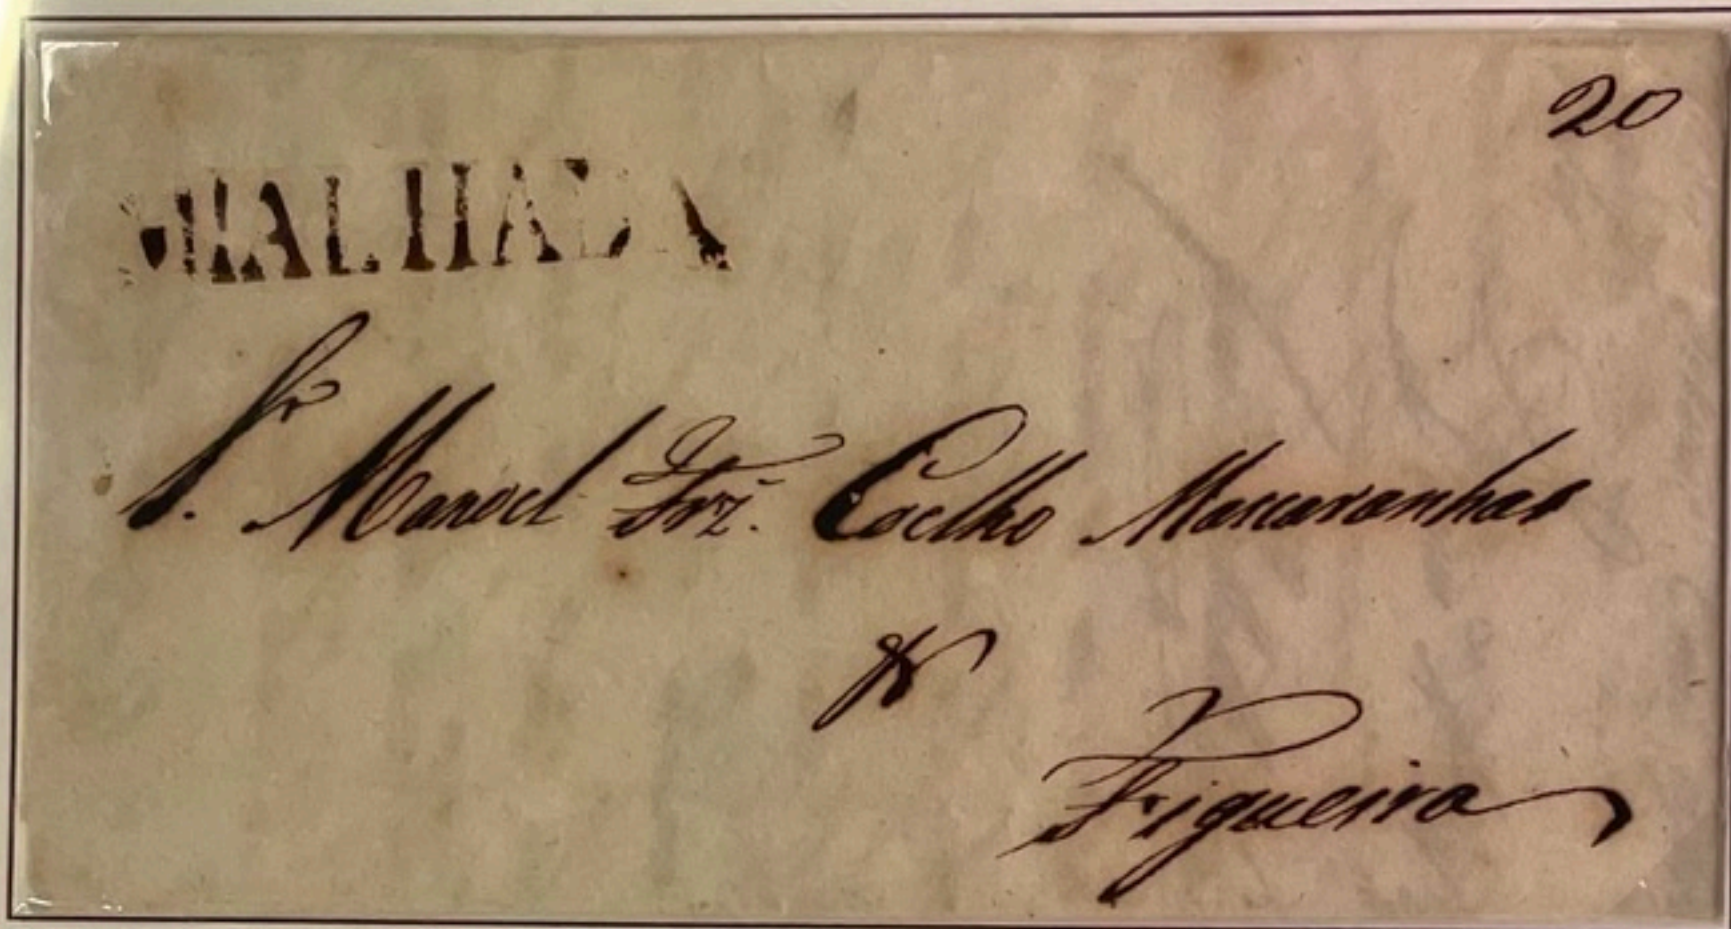 20
MEALHADA
Sr. Manoel Frz. Coelho Mascaranhas
Figueira